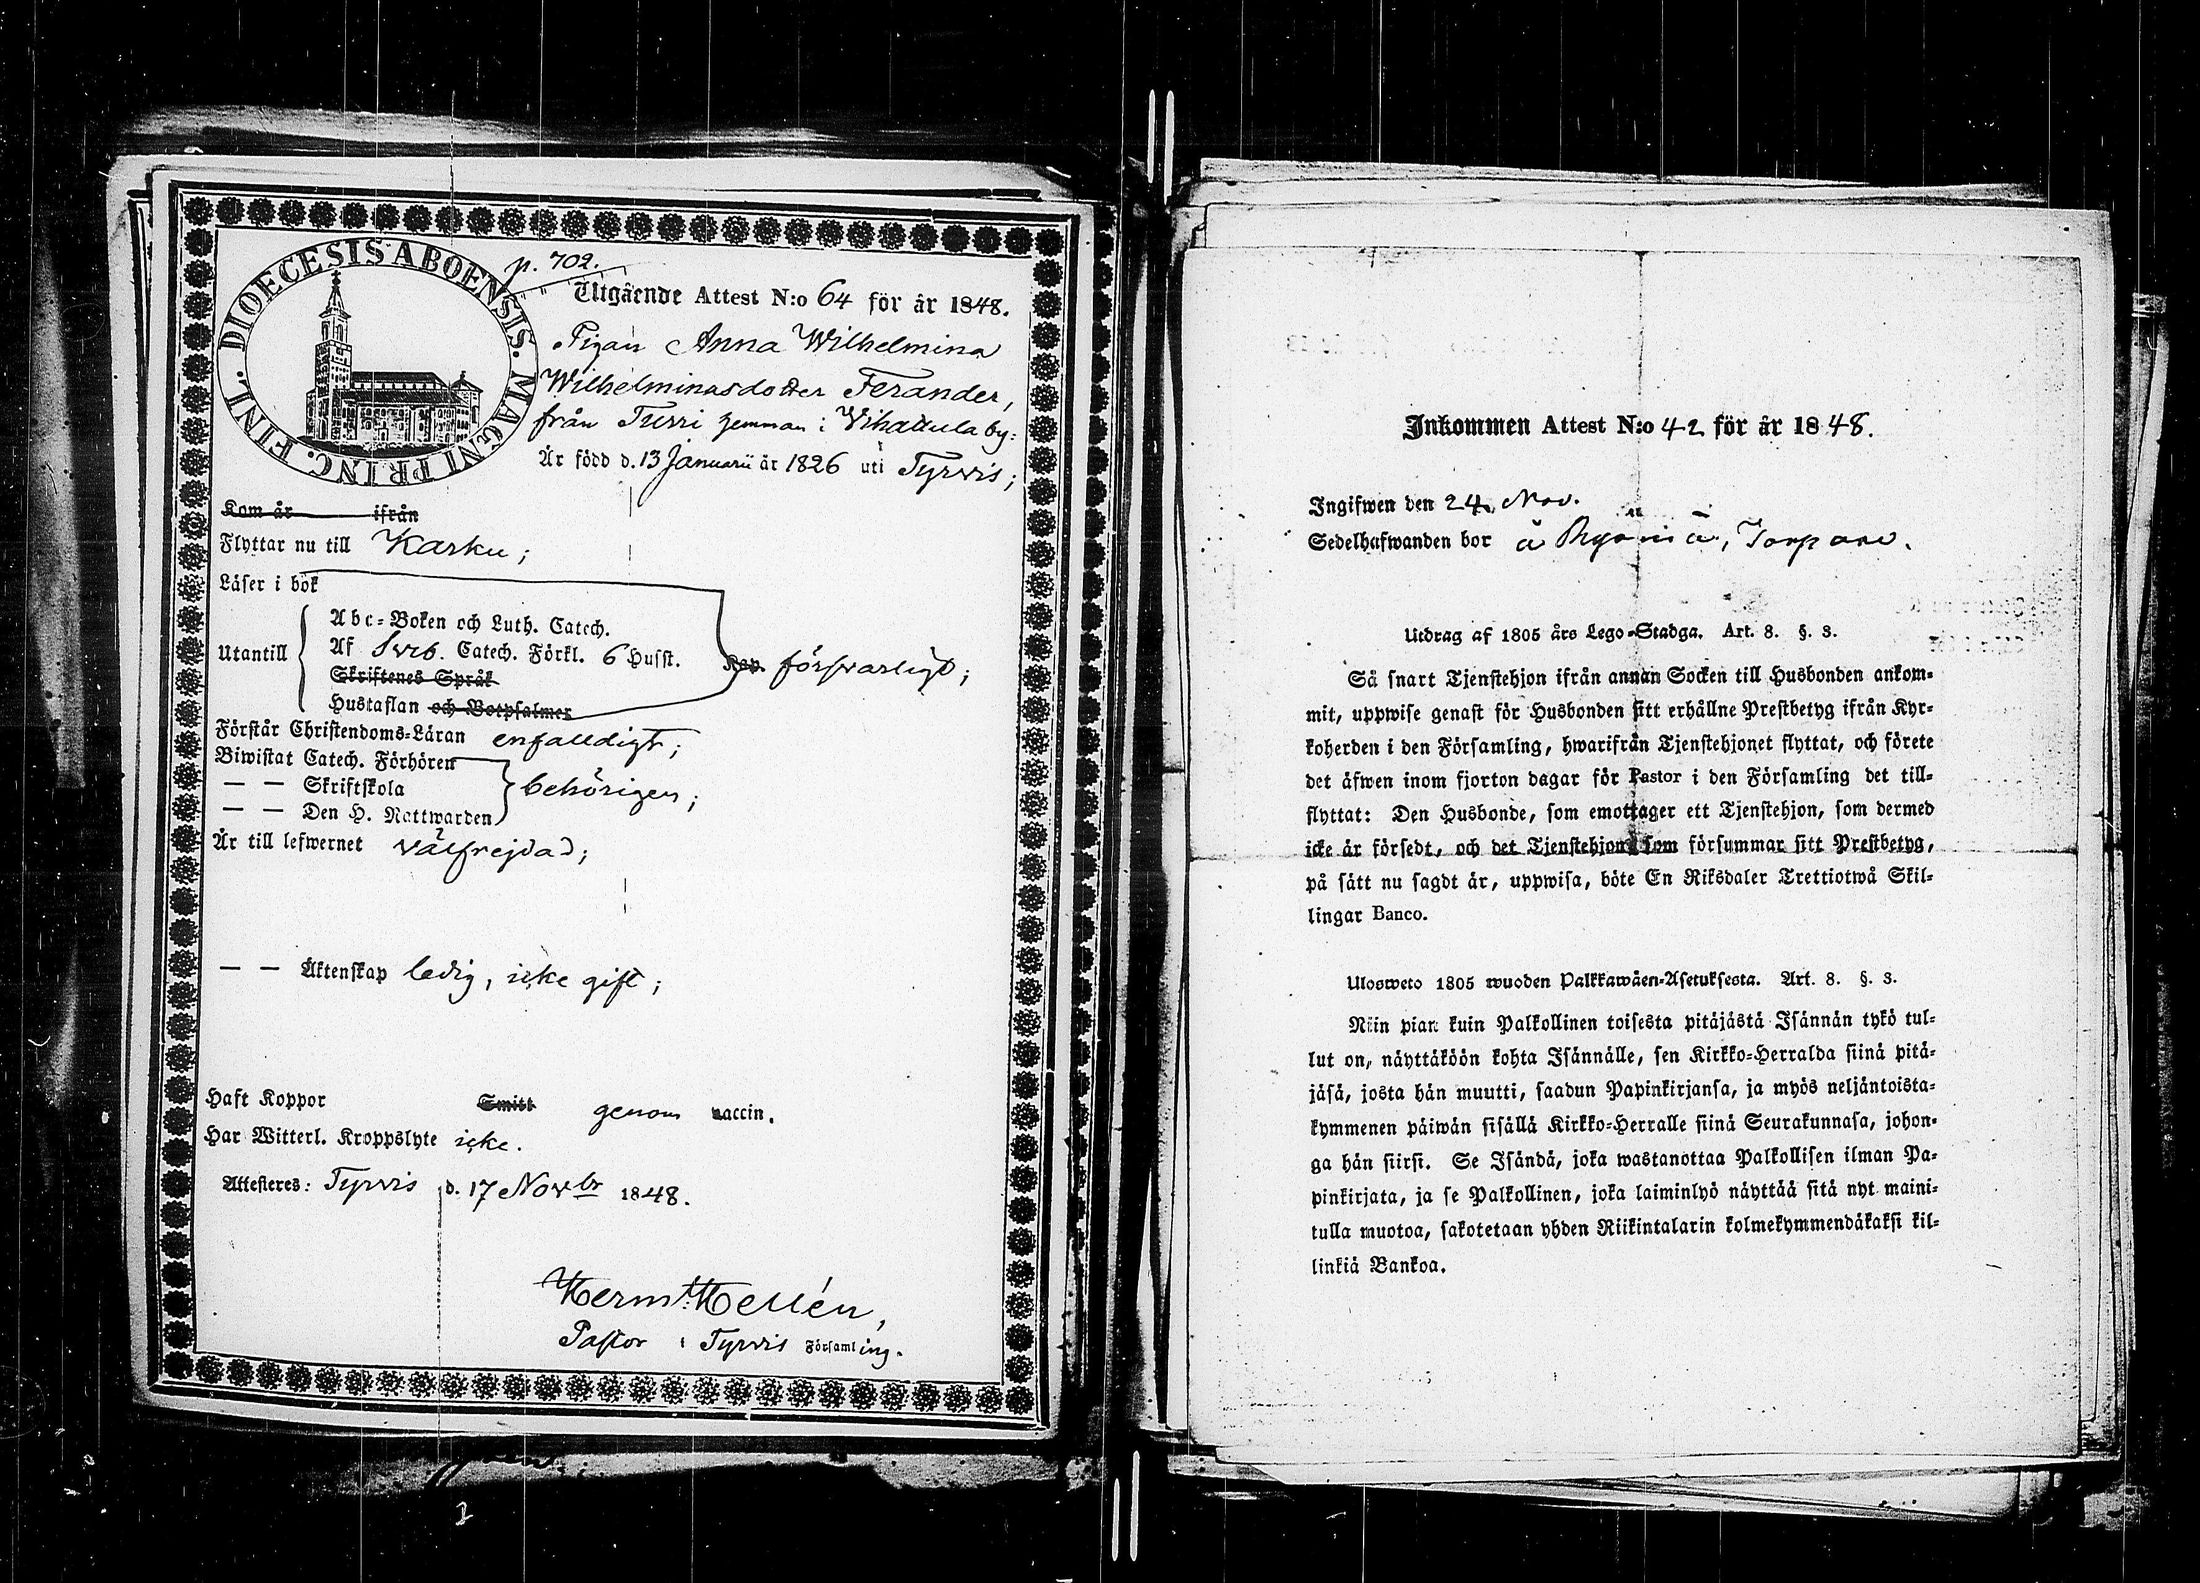 DIOECESIS ABOENSIS. MAGNI PRINC. FINL.
p. 702.
Utgående Attest N:o 64 för år 1848.
Pigan Anna Wilhelmina
Wilhelminasdotter Ferander,
från Turri hemman i Vihattula by:
Är född d. 13 Januarii år 1826 uti Tyrvis;
Kom år ifrån
Flyttar nu till Karku;
Läser i bok
Utantill
Abc-Boken och Luth. Catech.
Af Sveb. Catech. Förkl. 6 Hufst.
Skriftenes Språk
Hustaflan och Botpsalmer
försvarligt;
Förstår Christendoms-Läran enfalldigt;
Biwistat Catech. Förhören
— — Skriftskola
— — Den H. Nattwarden
behörigen;
Är till lefwernet välfrejdad;
— — Äktenskap ledig, icke gift;
Haft Koppor Smitt genom vaccin.
Har Witterl. Kroppslyte icke.
Attesteres: Tyrvis d. 17 Novbr 1848.
Herm: Hellén,
Pastor i Tyrvis Församling.
Inkommen Attest N:o 42 för år 1848.
Ingifwen den 24. Nov.
Sedelhafwanden bor å Torpare.
Utdrag af 1805 års Lego-Stadga. Art. 8. §. 3.
Så snart Tjenstehjon ifrån annan Socken till Husbonden ankom-
mit, uppwise genast för Husbonden sitt erhållne Prestbetyg ifrån Kyr-
koherden i den Församling, hwarifrån Tjenstehjonet flyttat, och förete
det äfwen inom fjorton dagar för Pastor i den Församling det till-
flyttat: Den Husbonde, som emottager ett Tjenstehjon, som dermed
icke är försedt, och det Tjenstehjon som försummar sitt Prestbetyg,
på sätt nu sagdt är, uppwisa, böte En Riksdaler Trettiotwå Skil-
lingar Banco.
Ulosweto 1805 wuoden Palkkawäen-Asetuksesta. Art. 8. §. 3.
Niin pian kuin Palkollinen toisesta pitäjästä Isännän tykö tul-
lut on, näyttäköön kohta Isännälle, sen Kirkko-Herralda siinä pitä-
jäsä, josta hän muutti, saadun Papinkirjansa, ja myös neljäntoista-
kymmenen päiwän sisällä Kirkko-Herralle siinä Seurakunnasa, johon-
ga hän siirsi. Se Isändä, joka wastanottaa Palkollisen ilman Pa-
pinkirjata, ja se Palkollinen, joka laiminlyö näyttää sitä nyt maini-
tulla muotoa, sakotetaan yhden Riikintalarin kolmekymmendäkaksi kil-
linkiä Bankoa.